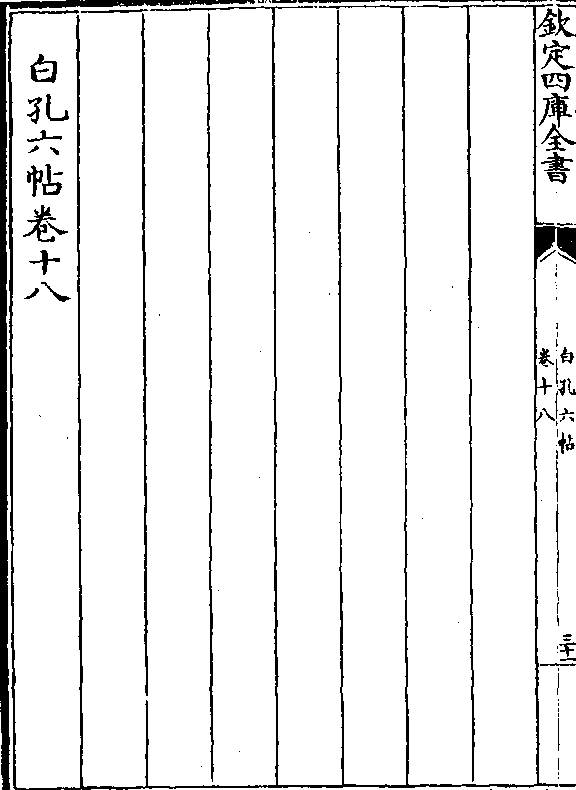 欽定四庫全書
白孔六帖
卷十八
三十二
白孔六帖卷十八